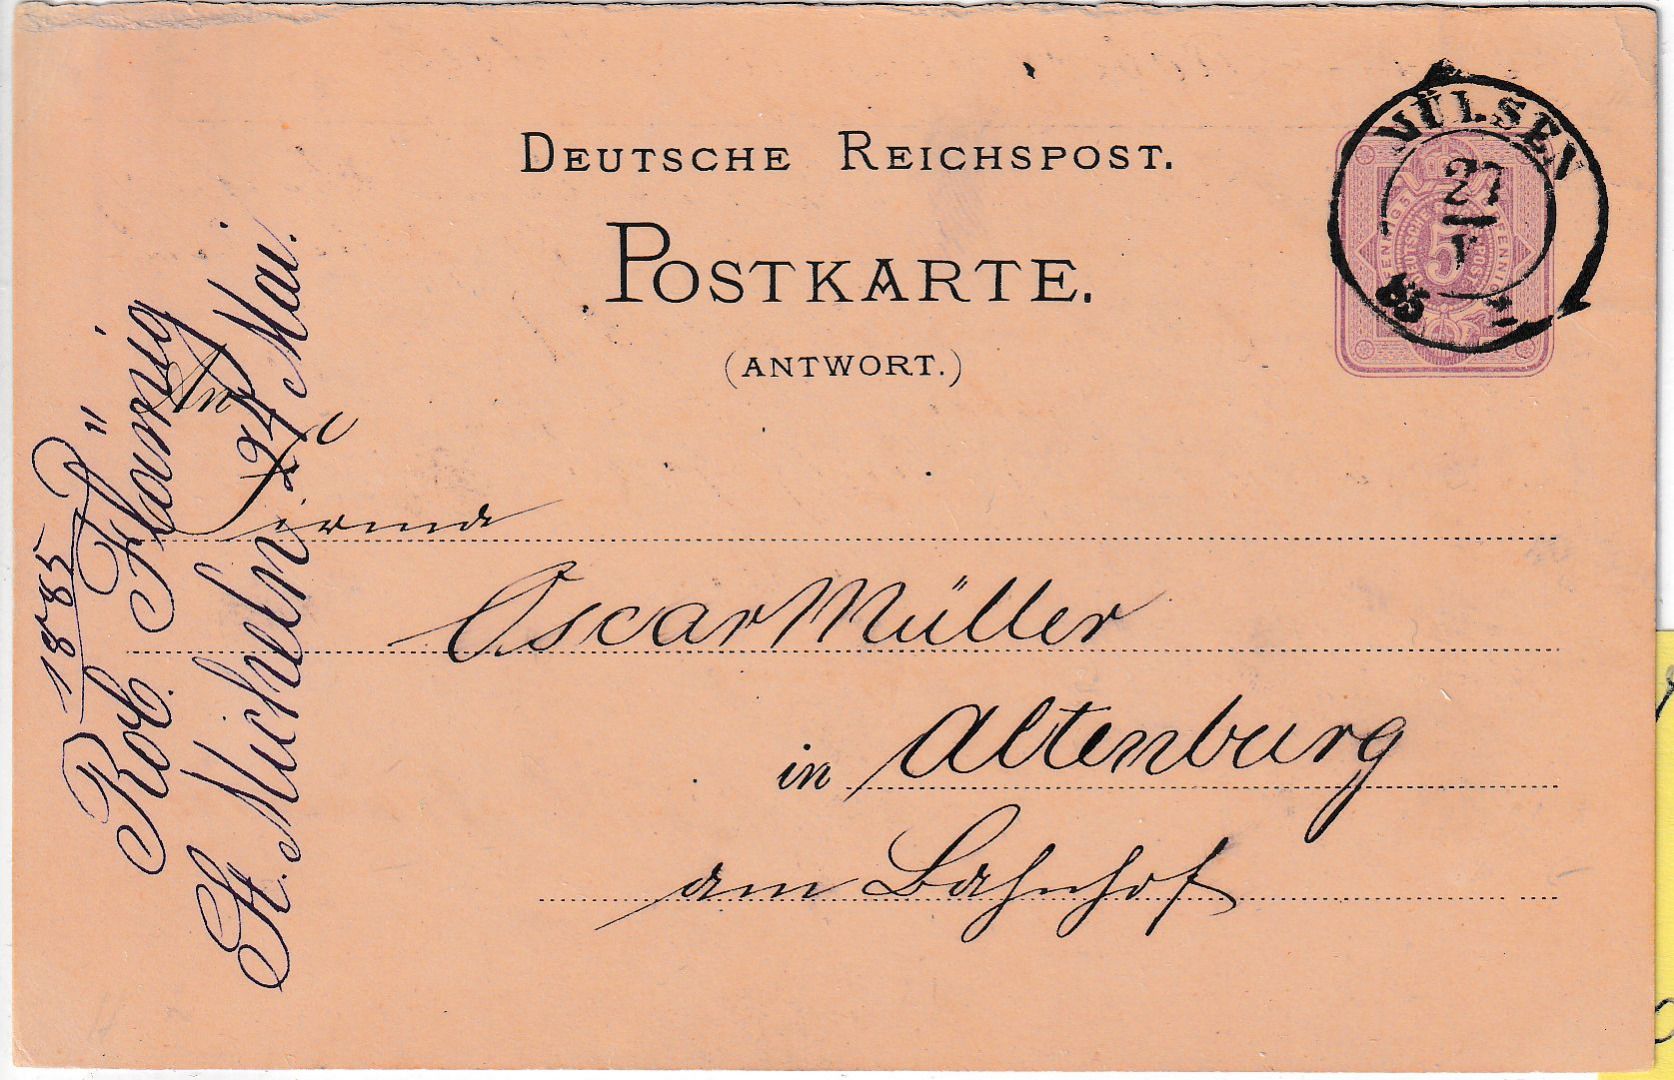 DEUTSCHE REICHSPOST.
POSTKARTE.
(ANTWORT.)
NÜLSEN
27
V
85
5
An
Firma
Oscar Müller
in Altenburg
am Bahnhof
1885
Rob. Flämig
St. Micheln 24 Mai.